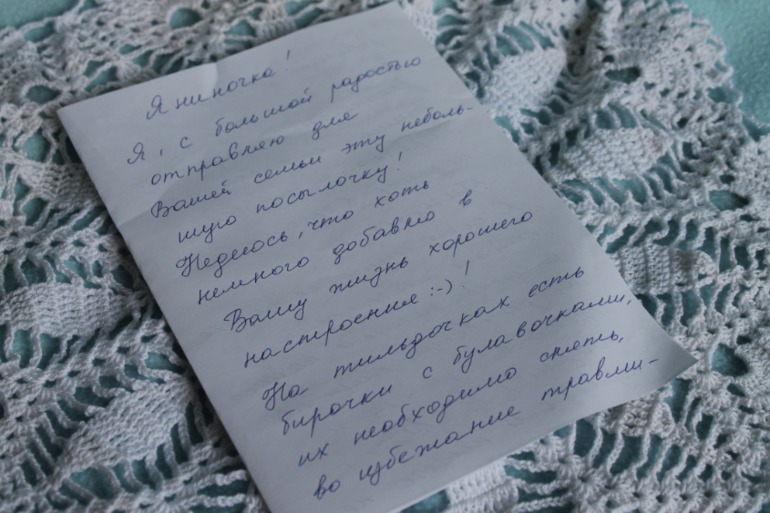 Яниночка!
Я, с большой радостью
отправляю для
Вашей семьи эту неболь-
шую посылочку!
Надеюсь, что хоть
немного добавлю в
Вашу жизнь хорошего
настроения :-)!
На тильдочках есть
бирочки с булавочками,
их необходимо снять,
во избежание травми-